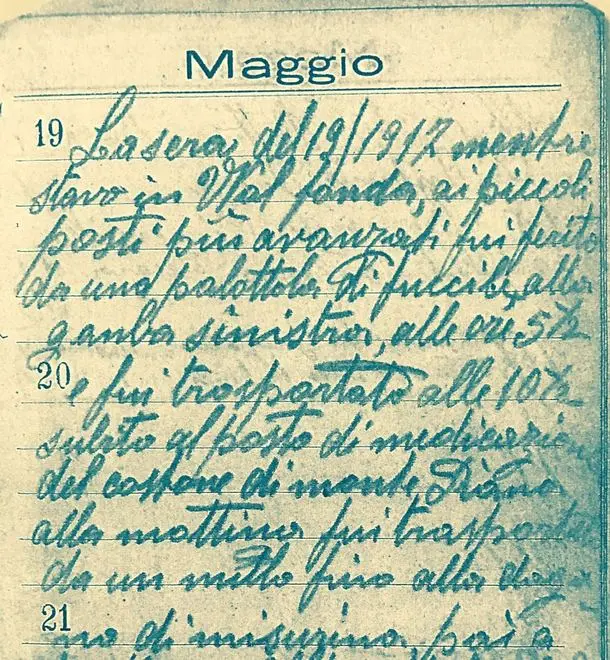 Maggio
19 La sera del 19/1917 mentre
stavo in Wal fonda, ai piccoli
posti più avanzati fui ferito
da una palottola di fuccile, alla
ganba sinistra, alle ore 5½
20 e fui trasportato alle 10½
subito al posto di medicazion
del costone di monte
alla mattina fui trasporta
da un mullo fino alla
21 no di misurina, poi a